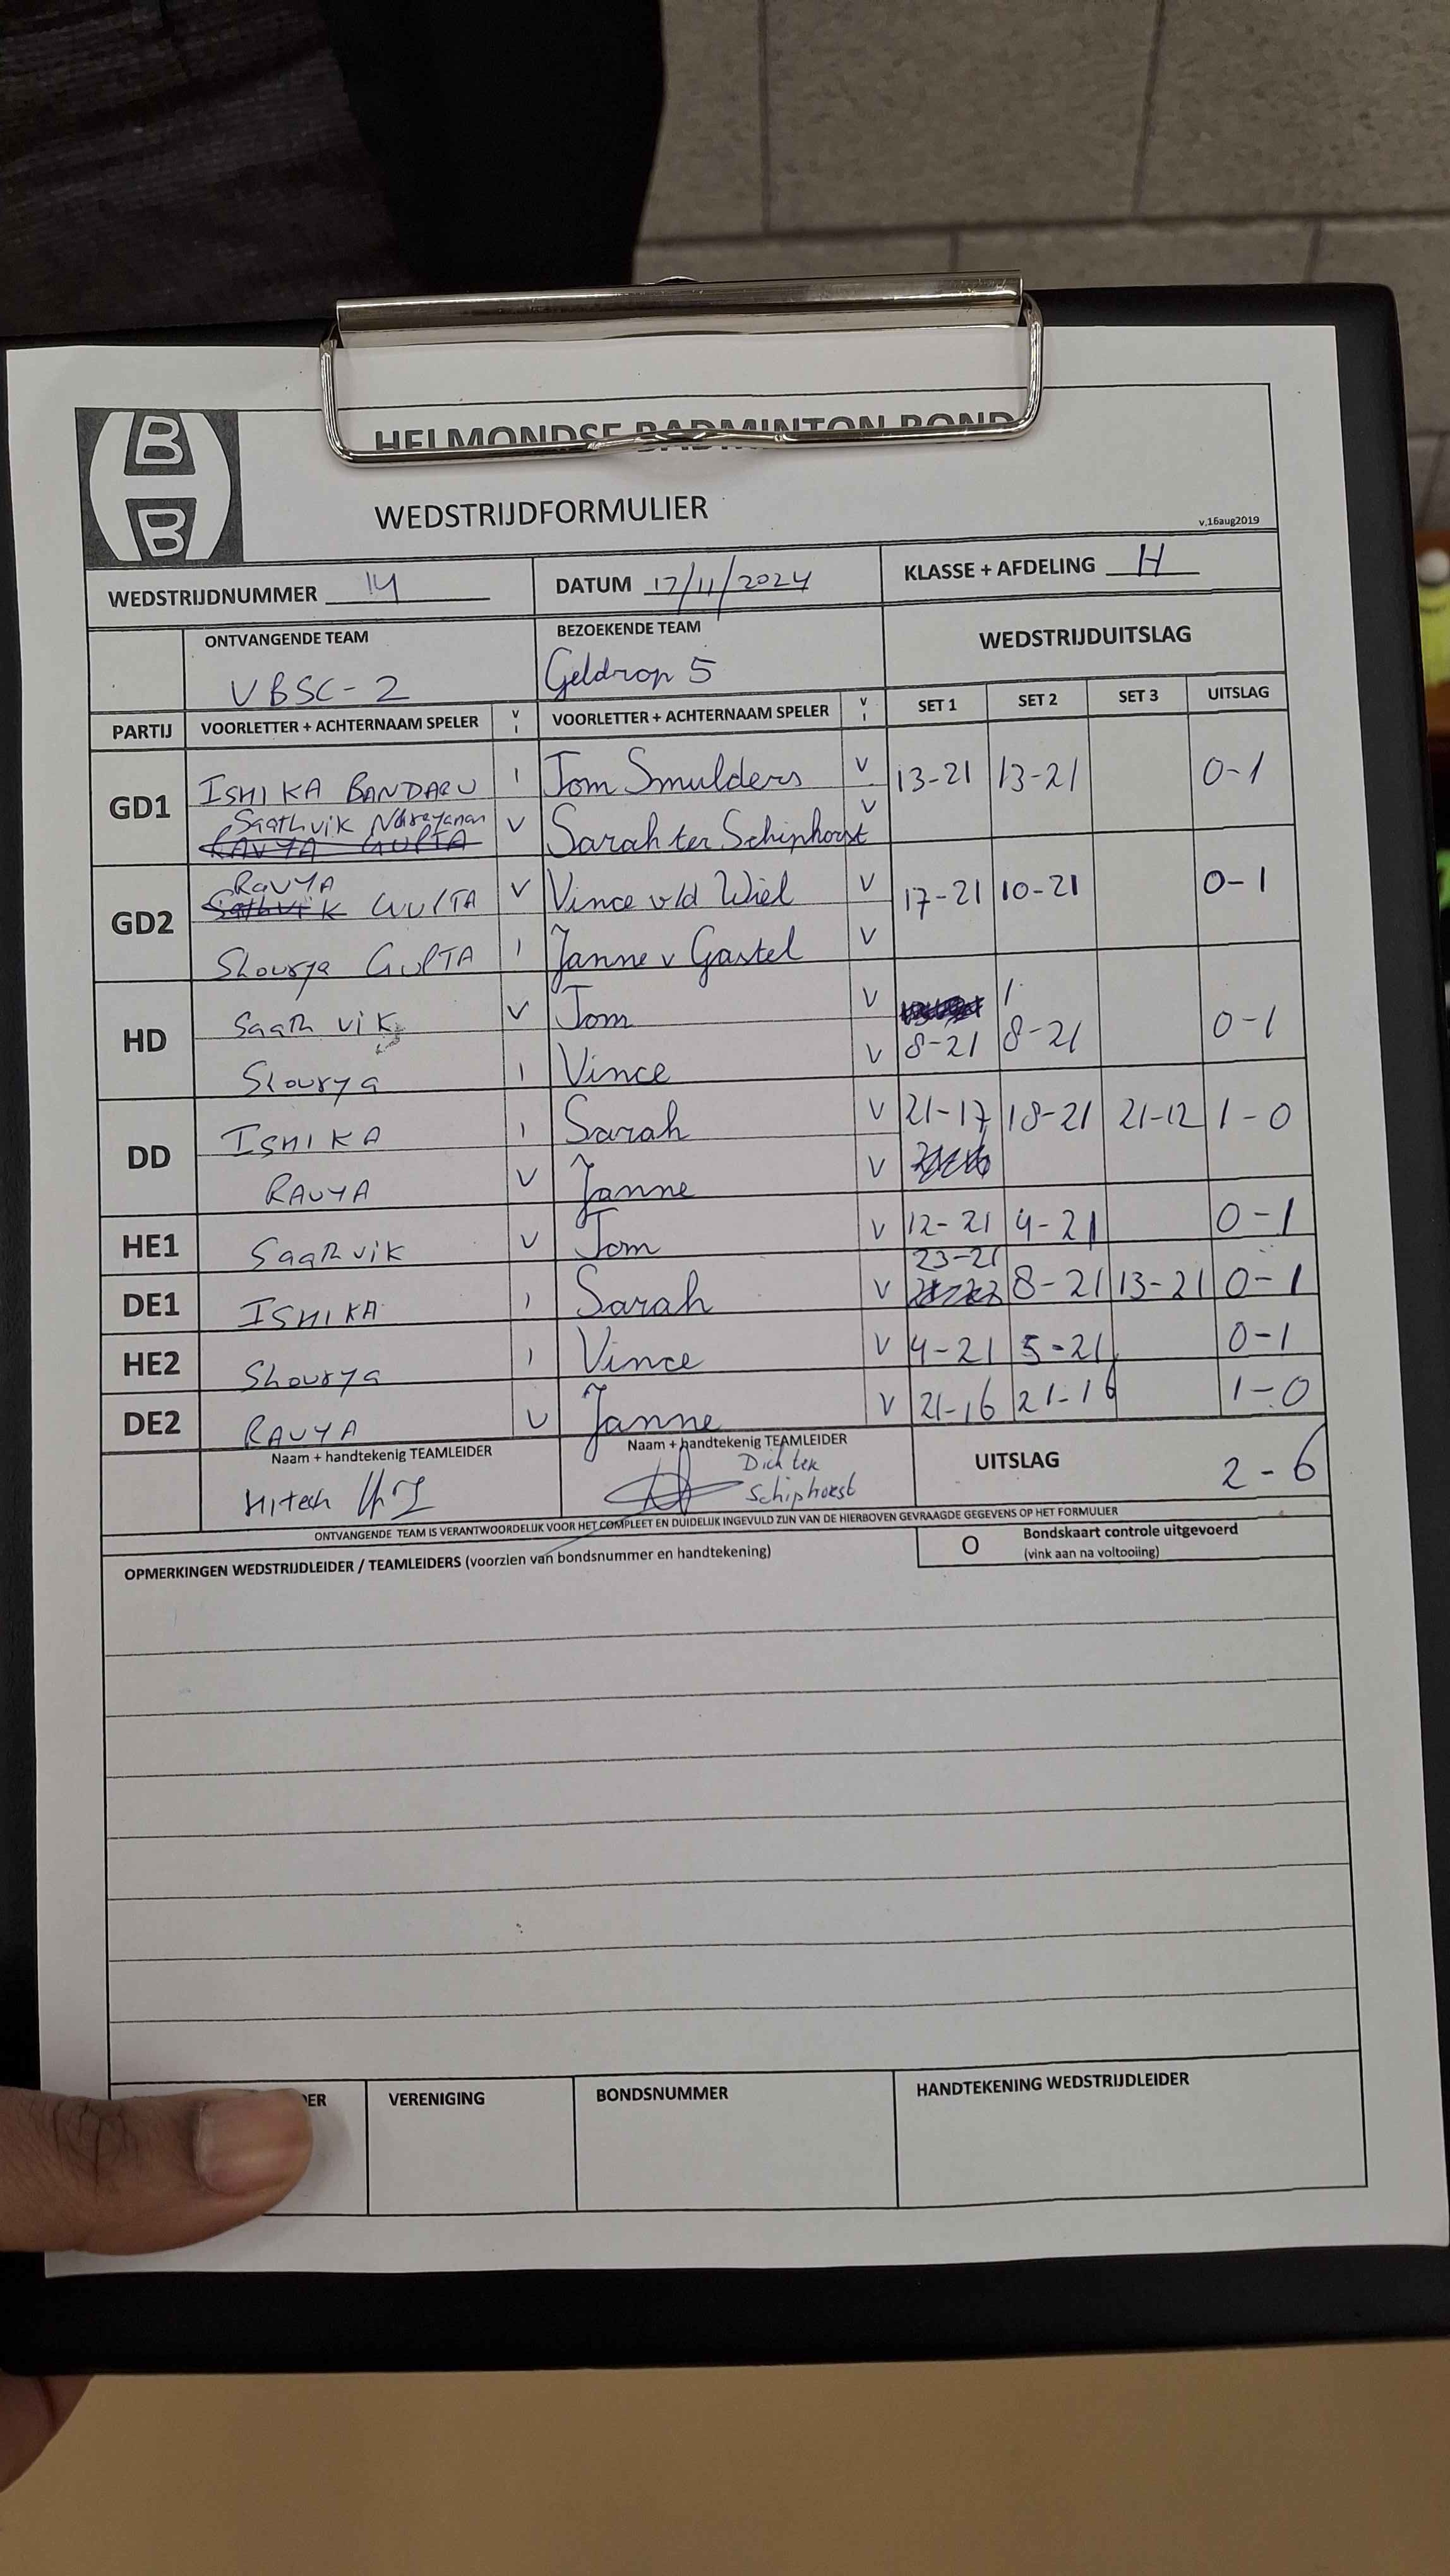 B
B
HELMONDSE BADMINTON BOND
WEDSTRIJDFORMULIER
v,16aug2019
WEDSTRIJDNUMMER 14 DATUM 17/11/2024 KLASSE + AFDELING H
ONTVANGENDE TEAM BEZOEKENDE TEAM WEDSTRIJDUITSLAG
VBSC-2 Geldrop 5
PARTIJ VOORLETTER + ACHTERNAAM SPELER V I VOORLETTER + ACHTERNAAM SPELER V I SET 1 SET 2 SET 3 UITSLAG
GD1 ISHIKA BANDARU I Tom Smulders V 13-21 13-21 0-1
Saathvik Narayanan V Sarah ter Schiphorst V
KAVYA GUPTA
GD2 KAVYA V Vince v/d Wiel V 17-21 10-21 0-1
Sathvik GUPTA
Shourya GUPTA I Janne v Gastel V
HD Saathvik V Tom V 8-21 8-21 0-1
Shourya I Vince V
DD ISHIKA I Sarah V 21-17 18-21 21-12 1-0
KAVYA V Janne V
HE1 Saathvik V Tom V 12-21 4-21 0-1
DE1 ISHIKA I Sarah V 23-21 8-21 13-21 0-1
HE2 Shourya I Vince V 4-21 5-21 0-1
DE2 KAVYA V Janne V 21-16 21-16 1-0
Naam + handtekenig TEAMLEIDER Naam + handtekenig TEAMLEIDER UITSLAG 2-6
Hitech Dick ter
Schiphorst
ONTVANGENDE TEAM IS VERANTWOORDELIJK VOOR HET COMPLEET EN DUIDELIJK INGEVULD ZIJN VAN DE HIERBOVEN GEVRAAGDE GEGEVENS OP HET FORMULIER
OPMERKINGEN WEDSTRIJDLEIDER / TEAMLEIDERS (voorzien van bondsnummer en handtekening) O Bondskaart controle uitgevoerd
(vink aan na voltooiing)
DER VERENIGING BONDSNUMMER HANDTEKENING WEDSTRIJDLEIDER